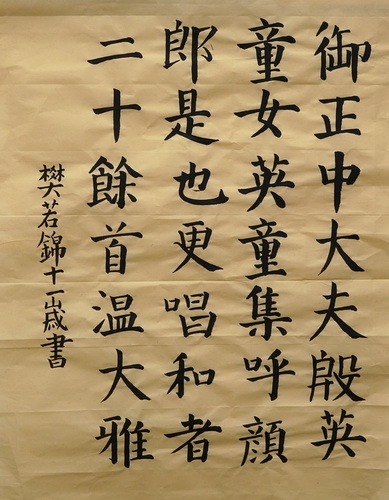 御正中大夫殷英
童女英童集呼顔
郎是也更唱和者
二十餘首温大雅
樊若錦十一歲書